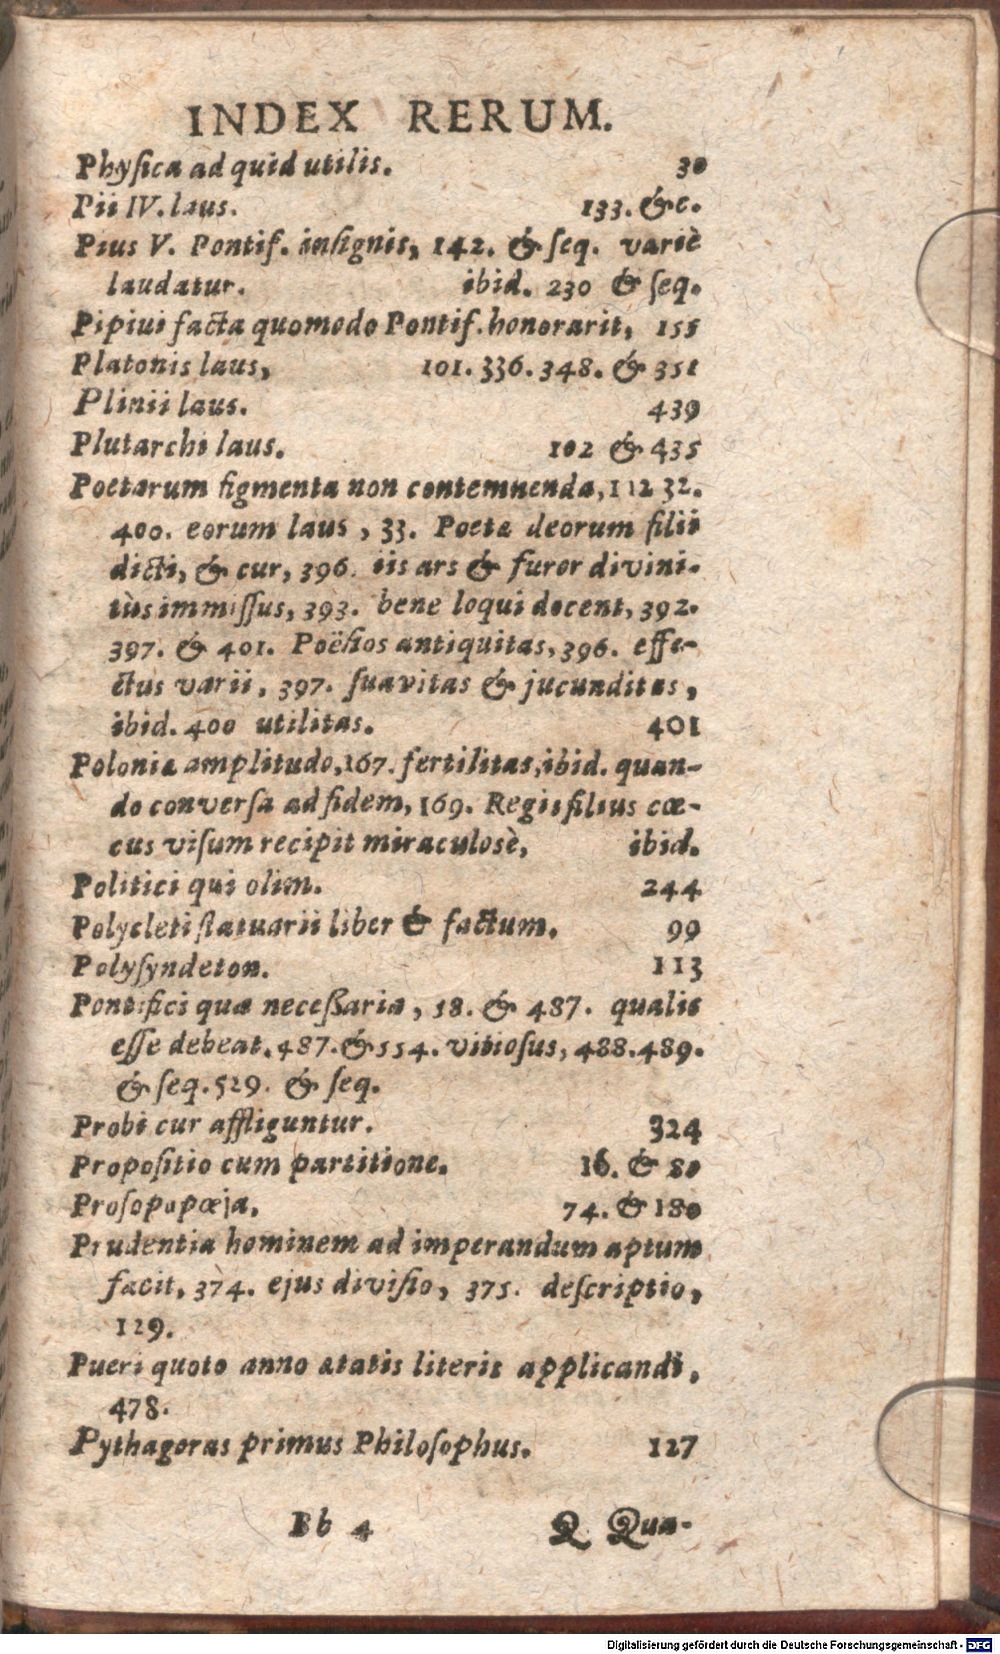 INDEX RERUM.
Phyſica ad quid utilis. 30
Pii IV. laus. 133. &c.
Pius V. Pontif. inſignis, 142. & ſeq. variè
laudatur. ibid. 230 & ſeq.
Pipiui facta quomodo Pontif. honorarit, 155
Platonis laus, 101. 336. 348. & 351
Plinii laus. 439
Plutarchi laus. 102 & 435
Poetarum figmenta non contemnenda, 112 32.
400. eorum laus, 33. Poetæ deorum filii
dicti, & cur, 396. iis ars & furor divini-
tùs immiſſus, 393. bene loqui docent, 392.
397. & 401. Poëſios antiquitas, 396. effe-
ctus varii, 397. ſuavitas & jucunditas,
ibid. 400 utilitas. 401
Poloniæ amplitudo, 167. fertilitas, ibid. quan-
do converſa ad fidem, 169. Regis filius cœ-
cus viſum recipit miraculosè, ibid.
Politici qui olim. 244
Polycleti ſtatuarii liber & factum. 99
Polyſyndeton. 113
Pontifici quæ neceßaria, 18. & 487. qualis
eſſe debeat. 487. & 554. vitioſus, 488. 489.
& ſeq. 529. & ſeq.
Probi cur affliguntur. 324
Propoſitio cum partitione. 16. & 80
Proſopopœja. 74. & 180
Prudentia hominem ad imperandum aptum
facit, 374. ejus diviſio, 375. deſcriptio,
129.
Pueri quoto anno ætatis literis applicandi,
478.
Pythagoras primus Philoſophus. 127
Bb 4 Q Qua-
Digitalisierung gefördert durch die Deutsche Forschungsgemeinschaft - DFG